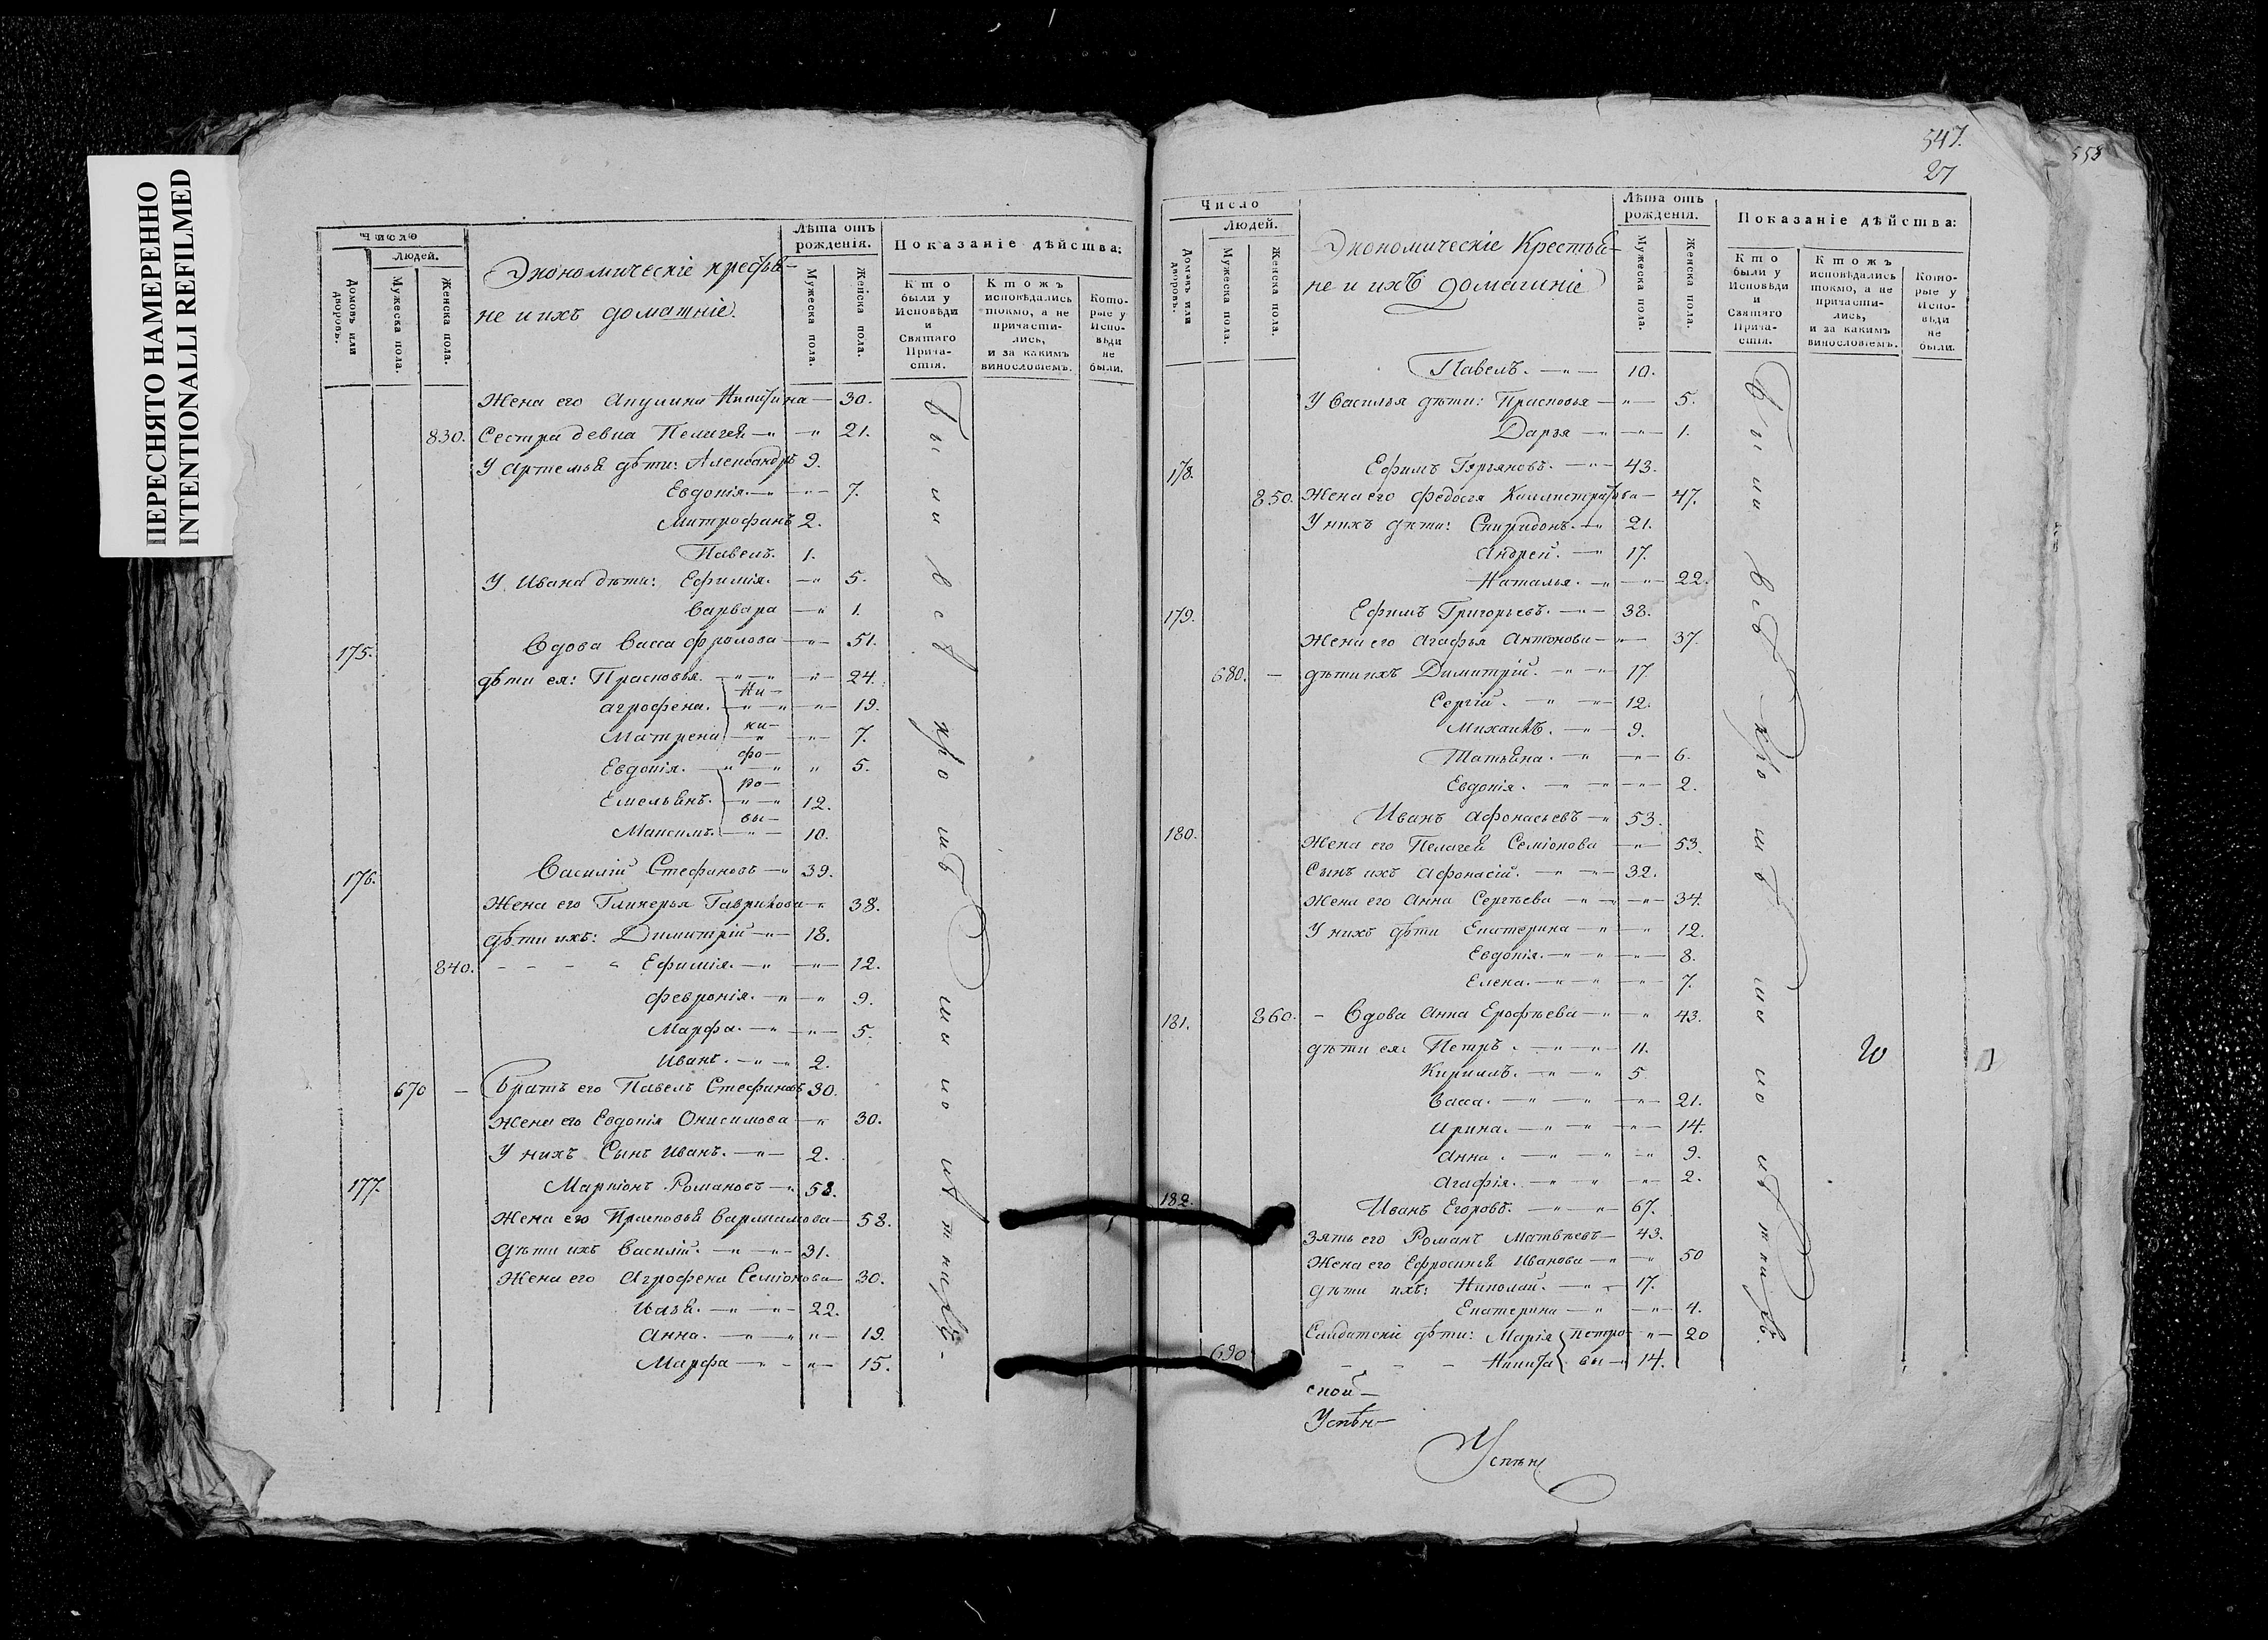 ПЕРЕСНЯТО НАМЕРЕННО
INTENTIONALLI REFILMED
Число
Людей.
Домовъ или дворовъ.
Мужеска пола.
Женска пола.
Экономическіе крестья-
не и ихъ домашніе.
Лѣта отъ рожденія.
Мужеска пола.
Женска пола.
Показаніе дѣйства:
Кто были у Исповѣди и Святаго Прича-стія.
Ктожъ исповѣдались токмо, а не причасти-лись, и за какимъ винословіемъ.
Кото-рые у Испо-вѣди не были.
Жена его Акулина Никитина — 30.
830. Сестра девка Пелагея — " — " 21.
У Артемья дѣти: Александръ 9.
Евдокія. — " — " — 7.
Митрофанъ 2.
Павелъ. 1.
У Ивана дѣти: Ефимія. — " 5.
Варвара — " 1.
175. Вдова Васса Фролова — " — 51.
дѣти ея: Прасковья. — " — " — " — 24.
Ни-
Агрофена. — " — " — " — 19.
ки-
Матрена — " — " — 7.
фо-
Евдокія. — " — " " 5.
ро-
Емельянъ. — " — " 12.
вы-
Максимъ. — " — 10.
176. Василій Стефановъ — " 39.
Жена его Гликерья Гаврилова — " 38.
дѣти ихъ: Димитрій — " — 18.
840. - - - " Ефимія. — " — " — 12.
Февронія. — " — " 9.
Марфа. — " — " — 5.
Иванъ. — " — " 2.
670 — Братъ его Павелъ Стефановъ 30.
Жена его Евдокія Онисимова — " 30.
У нихъ Сынъ Иванъ. — " — 2.
177. Маркіонъ Романовъ — " 58.
Жена его Прасковья Варламова — 58.
дѣти ихъ Василій. — " — " — 31.
Жена его Агрофена Семіонова — 30.
Илья. — " — " — 22.
Анна. — " — " " — 19.
Марфа — " — " — 15.
Были всѣ кромѣ малолѣтнихъ
547.
27
558
Число
Людей.
Домовъ или дворовъ.
Мужеска пола.
Женска пола.
Экономическіе Крестья-
не и ихъ домашніе
Лѣта отъ рожденія.
Мужеска пола.
Женска пола.
Показаніе дѣйства:
Кто были у Исповѣди и Святаго Прича-стія.
Ктожъ исповѣдались токмо, а не причасти-лись, и за какимъ винословіемъ.
Кото-рые у Испо-вѣди не были.
Павелъ. — " — 10.
У Василья дѣти: Прасковья — " — 5.
Дарья — " — " — 1.
178. Ефимъ — " — 43.
850. Жена его Федосья Каллистратова — 47.
У нихъ дѣти: Спиридонъ. — " 21.
Андрей. — " 17.
Наталья. — " — " — 22.
179. Ефимъ Григорьевъ. — " — 38.
Жена его Агафья Антонова — " — 37.
680. — дѣти ихъ Димитрій. — " — " — 17.
Сергій. — " — " — 12.
Михаилъ. — " — 9.
Татьяна. — " — " — 6.
Евдокія. — " — " — " — 2.
180. Иванъ Афонасьевъ — " 53.
Жена его Пелагея Семіонова — " — 53.
Сынъ ихъ Афонасій. — " — " — 32.
Жена его Анна Сергѣева — " — " — " — 34.
У нихъ дѣти Екатерина — " — " 12.
Евдокія. — " — " — " — 8.
Елена. — " — " — " — 7.
181. 860. - Вдова Анна Ерофѣева — " — " 43.
дѣти ея: Петръ. — " — " — 11.
Кириллъ. — " — " 5.
Васса. — " — " — " — 21.
Ирина. — " — " — " — 14.
Анна. — " — " — " 9.
Агафія. — " — " — " — 2.
182. Иванъ Егоровъ. — " — " — 67.
Зять его Романъ Матвѣевъ — 43.
Жена его Ефросинья Иванова — " — " 50
дѣти ихъ: Николай. — " — 17.
Екатерина — " — " — 4.
Салдатскіе дѣти: Марія Петро- " — 20
690. - - - Никита вы — " 14.
Были всѣ кромѣ малолѣтнихъ.
ской —
Успѣн —
Успѣн